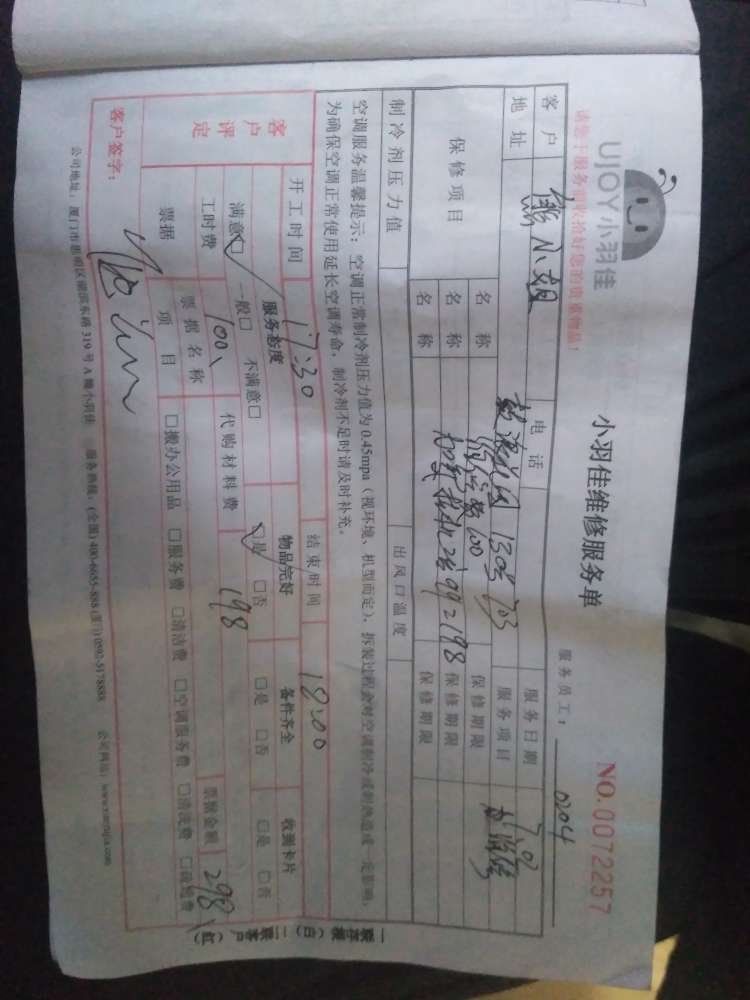 UJOY小羽佳
小羽佳维修服务单
NO.0072257
请您于服务前收拾好您的贵重物品!
服务员工: 0204
客户 熊小姐 电话 服务日期 7.02
地址 1305 703 服务项目
保修项目 名称 100 保修期限
名称 2 99 198 保修期限
名称 保修期限
制冷剂压力值 出风口温度
空调服务温馨提示:空调正常制冷剂压力值为0.45mpa(视环境、机型而定),拆装过程会对空调制冷或制热造成一定影响,
为确保空调正常使用延长空调寿命,制冷剂不足时请及时补充。
开工时间 17:30 结束时间 18:00
客户评定 服务态度 物品完好 备件齐全 收到卡片
满意□ 一般□ 不满意□ □是 □否 □是 □否 □是 □否
工时费 100 代购材料费 198 票据金额 298
票据 票据名称
项目 □搬办公用品 □服务费 □清洁费 □空调服务费 □清洗费
客户签字:
公司地址:厦门市思明区湖滨东路319号A幢小羽佳 服务热线:(全国)400-6655-888(厦门)0592-5178888 公司网址:
一联存根(白) 二联客户(红)